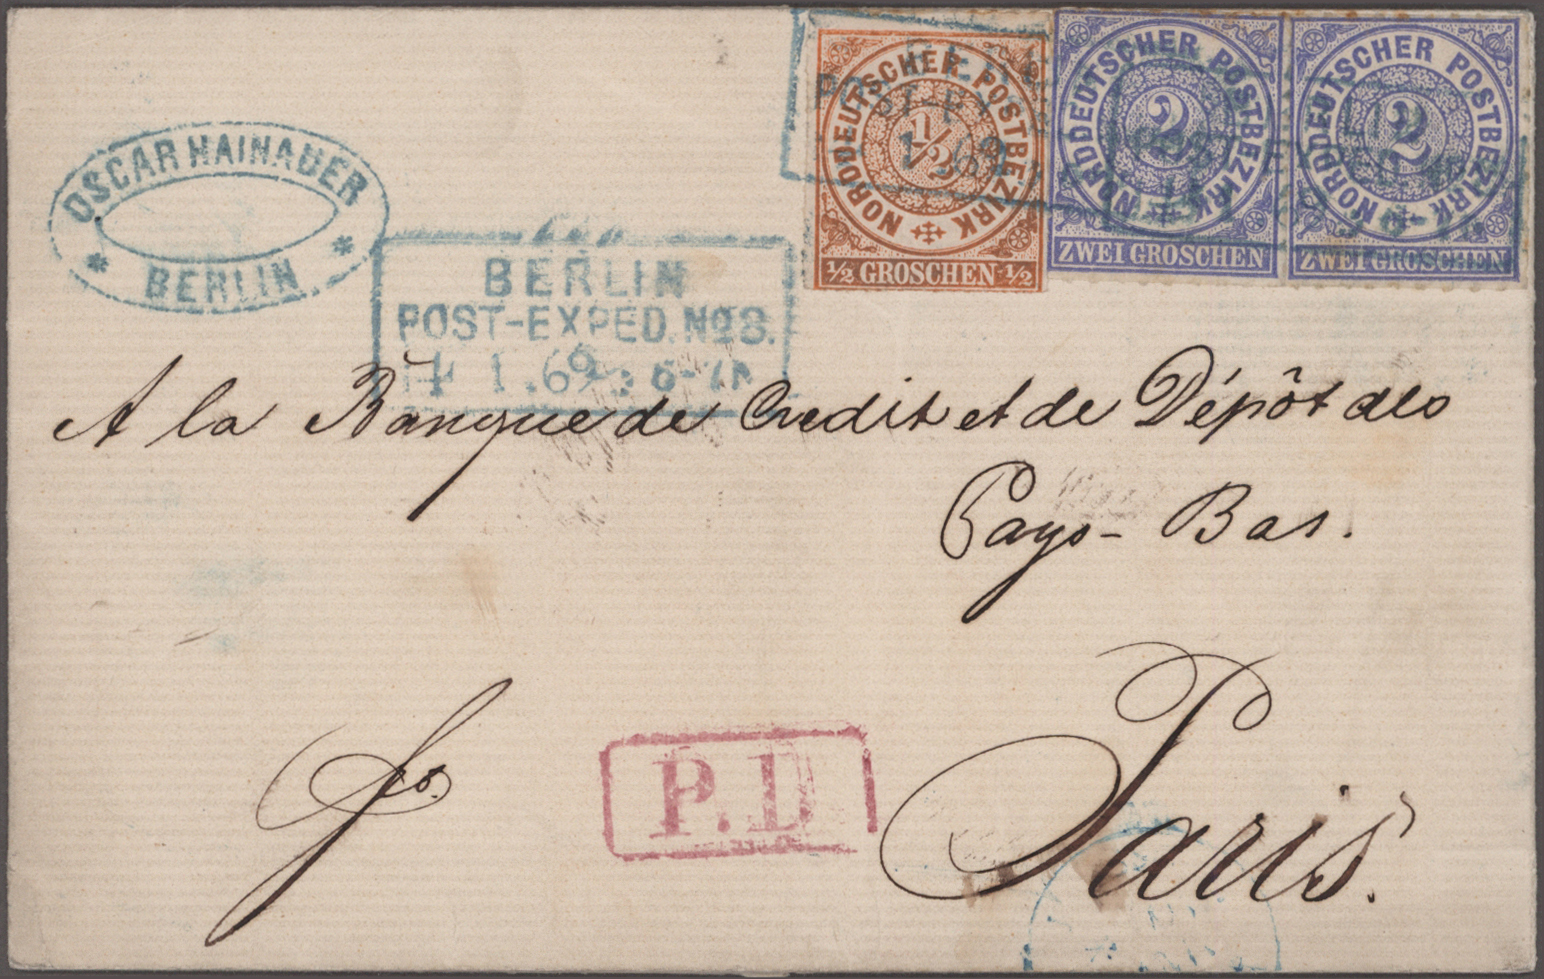 OSCAR HAINAUER
BERLIN
BERLIN
POST-EXPED. No 8.
1.69. 6-7N
NORDDEUTSCHER POSTBEZIRK
1/2
1/2 GROSCHEN 1/2
NORDDEUTSCHER POSTBEZIRK
2
ZWEI GROSCHEN
NORDDEUTSCHER POSTBEZIRK
2
ZWEI GROSCHEN
A la Banque de Credit et de Dépôt des
Pays-Bas.
fco.
P.D
Paris.